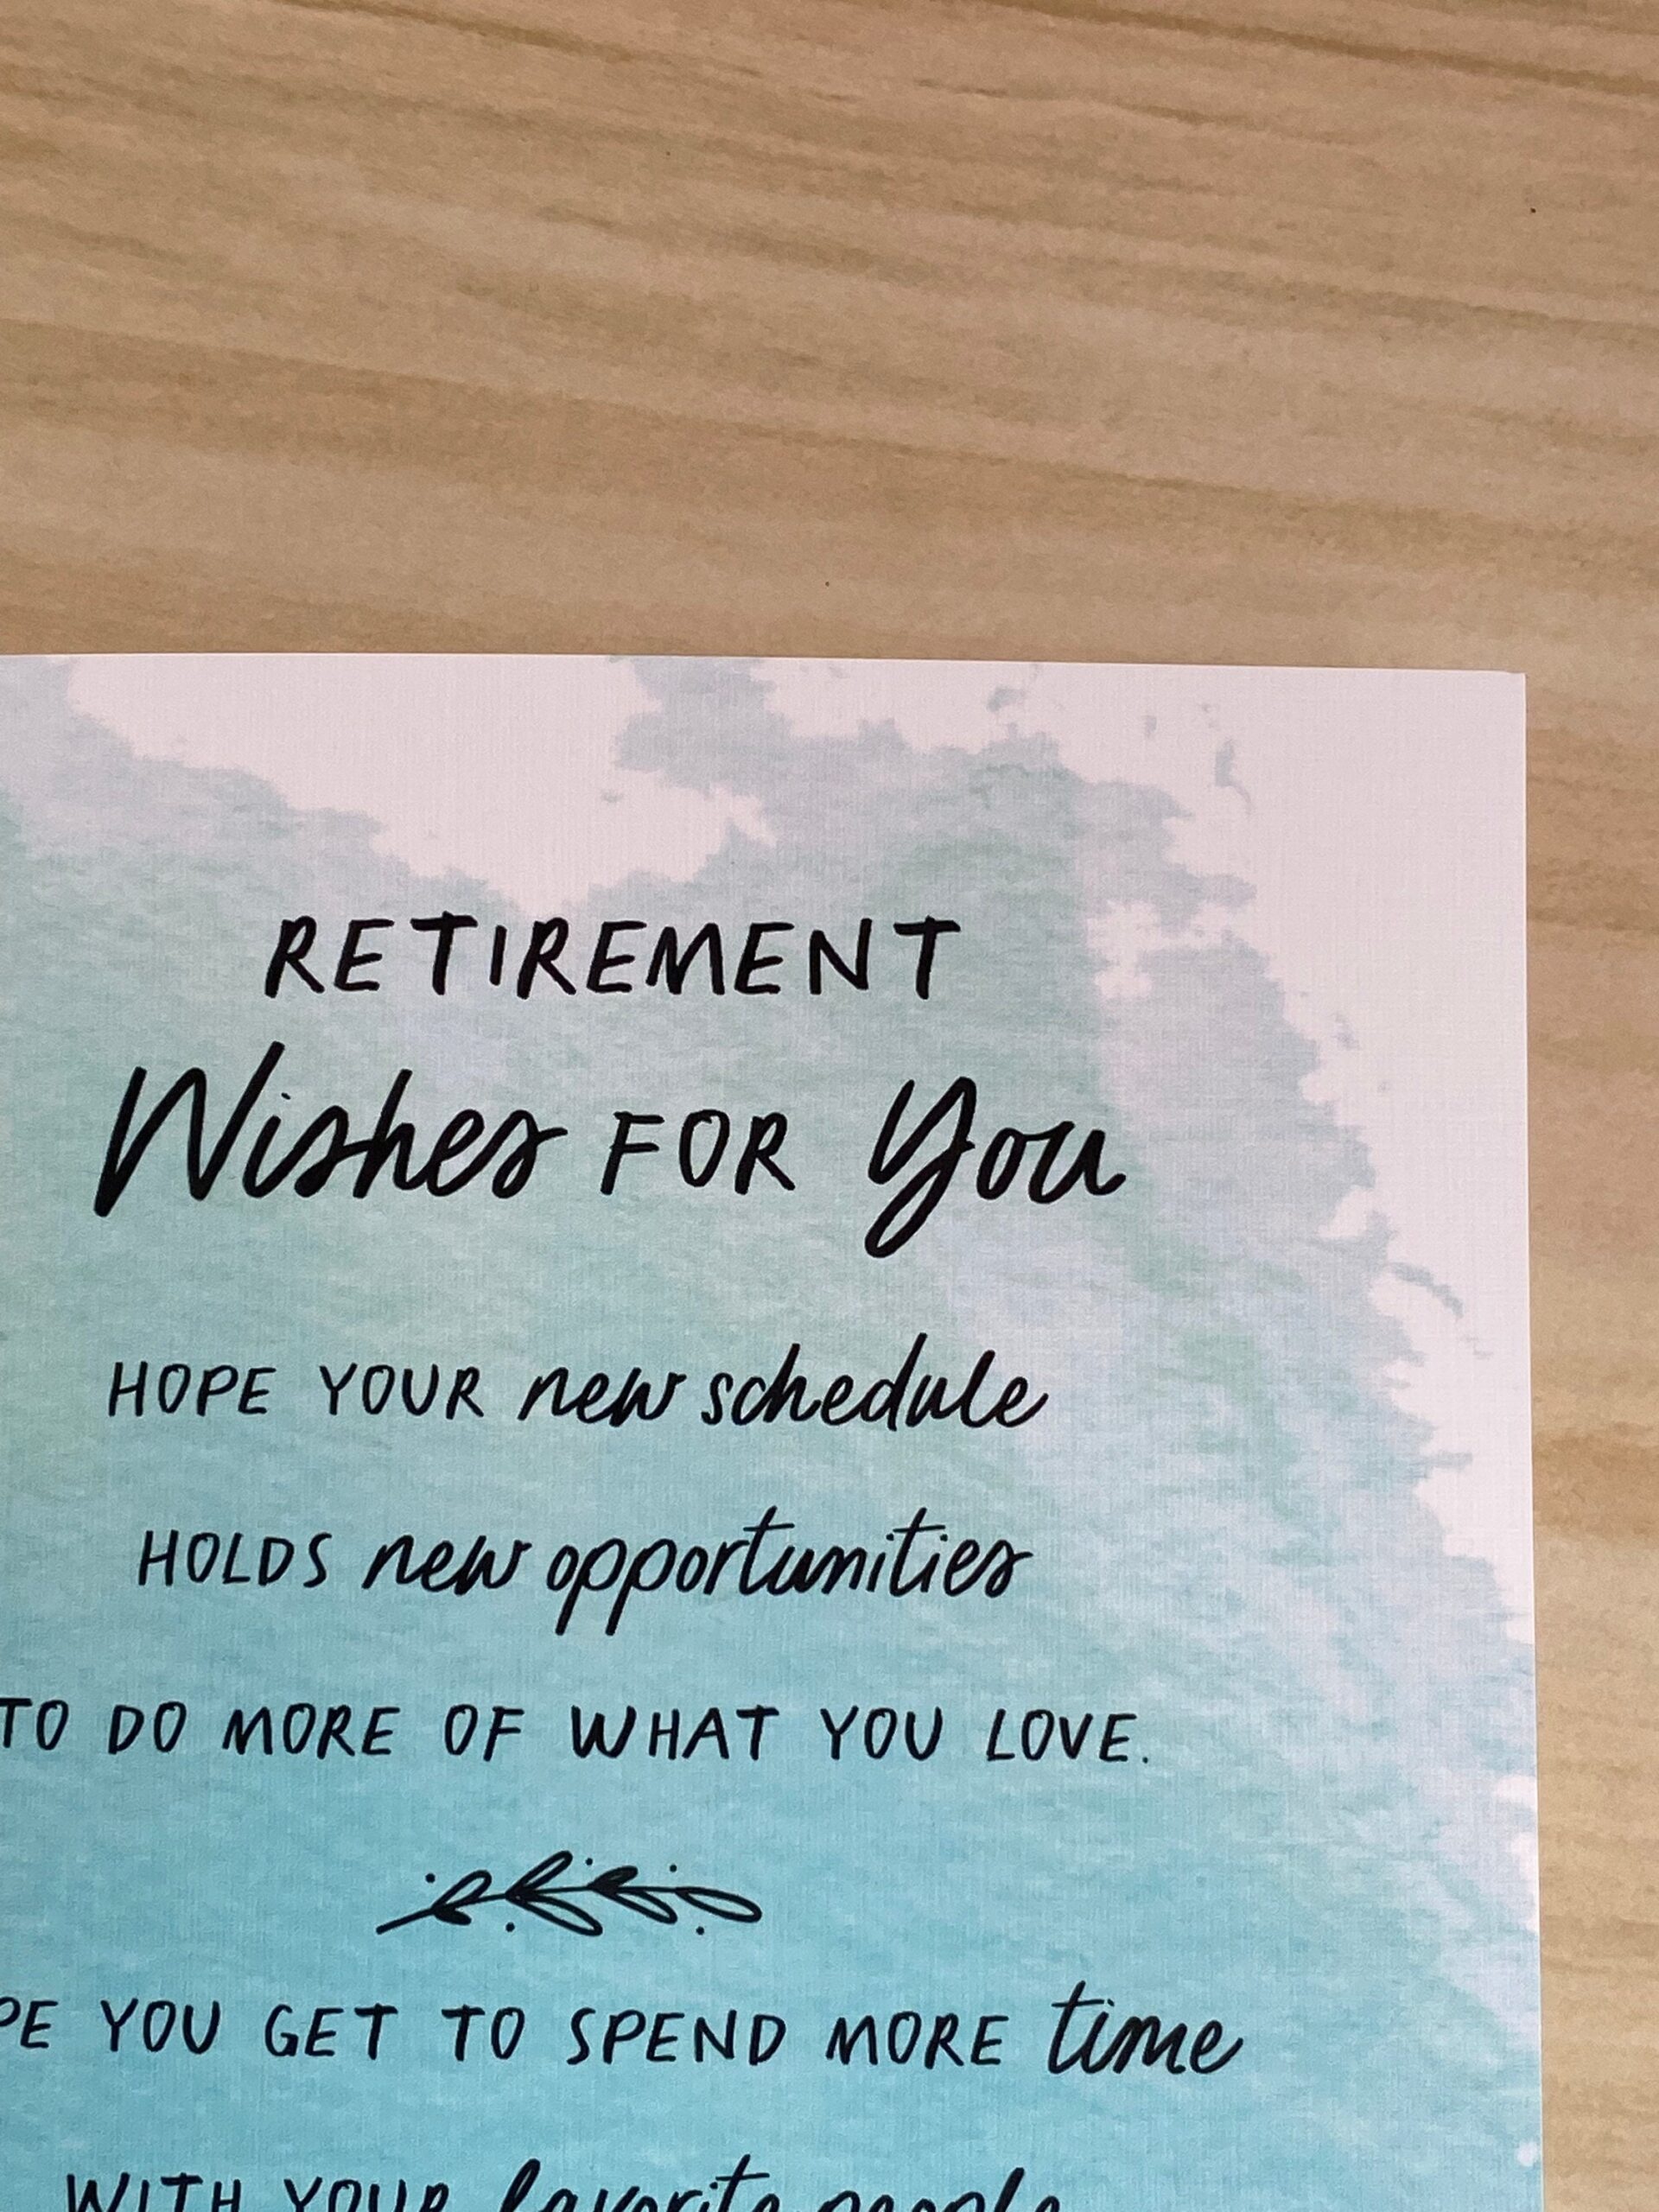 RETIREMENT
Wishes FOR You
HOPE YOUR new schedule
HOLDS new opportunities
TO DO MORE OF WHAT YOU LOVE.
YOU GET TO SPEND MORE time
WITH YOUR favorite people